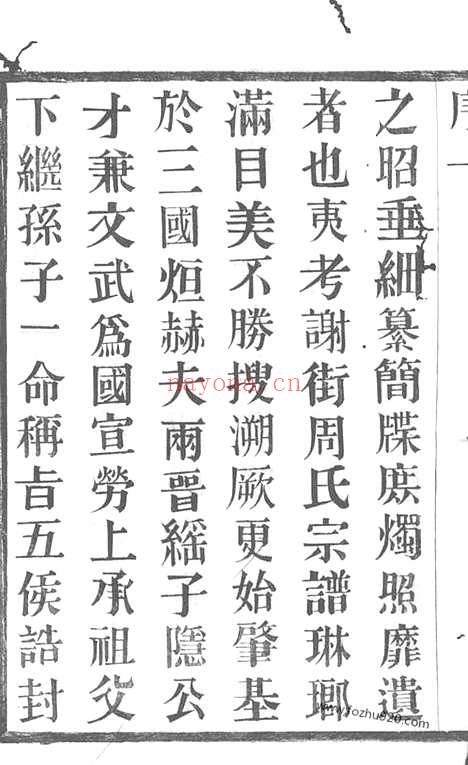 之昭垂細纂簡牒庶燭照靡遺
者也夷考謝街周氏宗譜琳瑯
滿目美不勝搜溯厥更始肇基
於三國烜赫夫兩晉繇子隱公
才兼文武爲國宣勞上承祖父
下繼孫子一命稱旨五侯誥封
nayona.cn
www.fozhu920.com